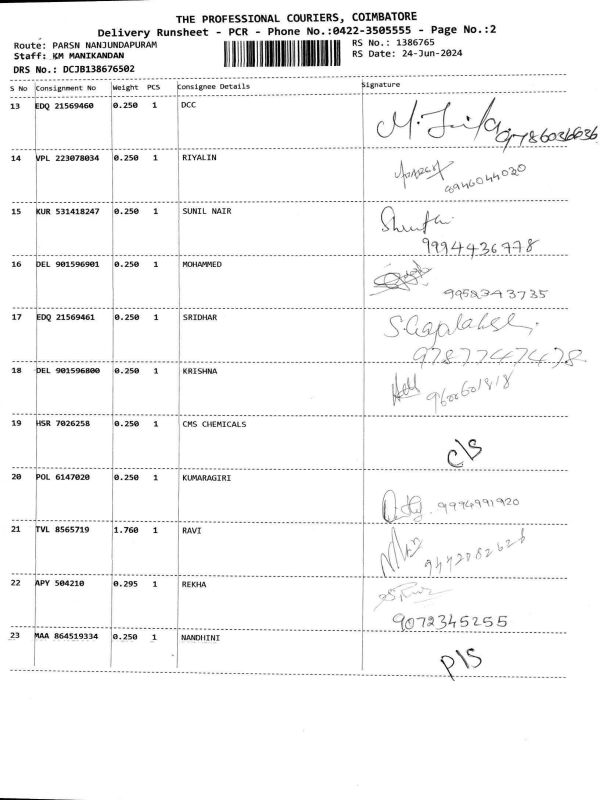 THE PROFESSIONAL COURIERS, COIMBATORE
Delivery Runsheet - PCR - Phone No.:0422-3505555 - Page No.:2
Route: PARSN NANJUNDAPURAM RS No.: 1386765
Staff: KM MANIKANDAN RS Date: 24-Jun-2024
DRS No.: DCJB138676502
S No Consignment No Weight PCS Consignee Details Signature
13 EDQ 21569460 0.250 1 DCC
9786036636
14 VPL 223078034 0.250 1 RIYALIN
8946044020
15 KUR 531418247 0.250 1 SUNIL NAIR
9994436778
16 DEL 901596901 0.250 1 MOHAMMED
9952743735
17 EDQ 21569461 0.250 1 SRIDHAR
9787747478
18 DEL 901596800 0.250 1 KRISHNA
9600601818
19 HSR 7026258 0.250 1 CMS CHEMICALS
C/S
20 POL 6147020 0.250 1 KUMARAGIRI
9994991920
21 TVL 8565719 1.760 1 RAVI
9442082628
22 APY 504210 0.295 1 REKHA
9072345255
23 MAA 864519334 0.250 1 NANDHINI
P/S